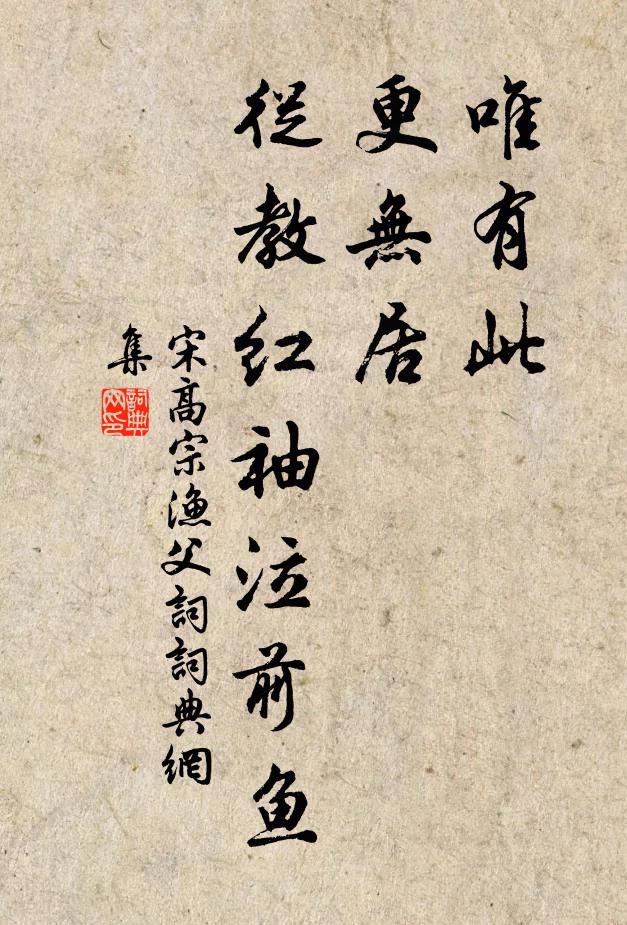 唯有此
更無居
從教紅袖泣前魚
宋高宗漁父詞詞典網
集
詞典網印